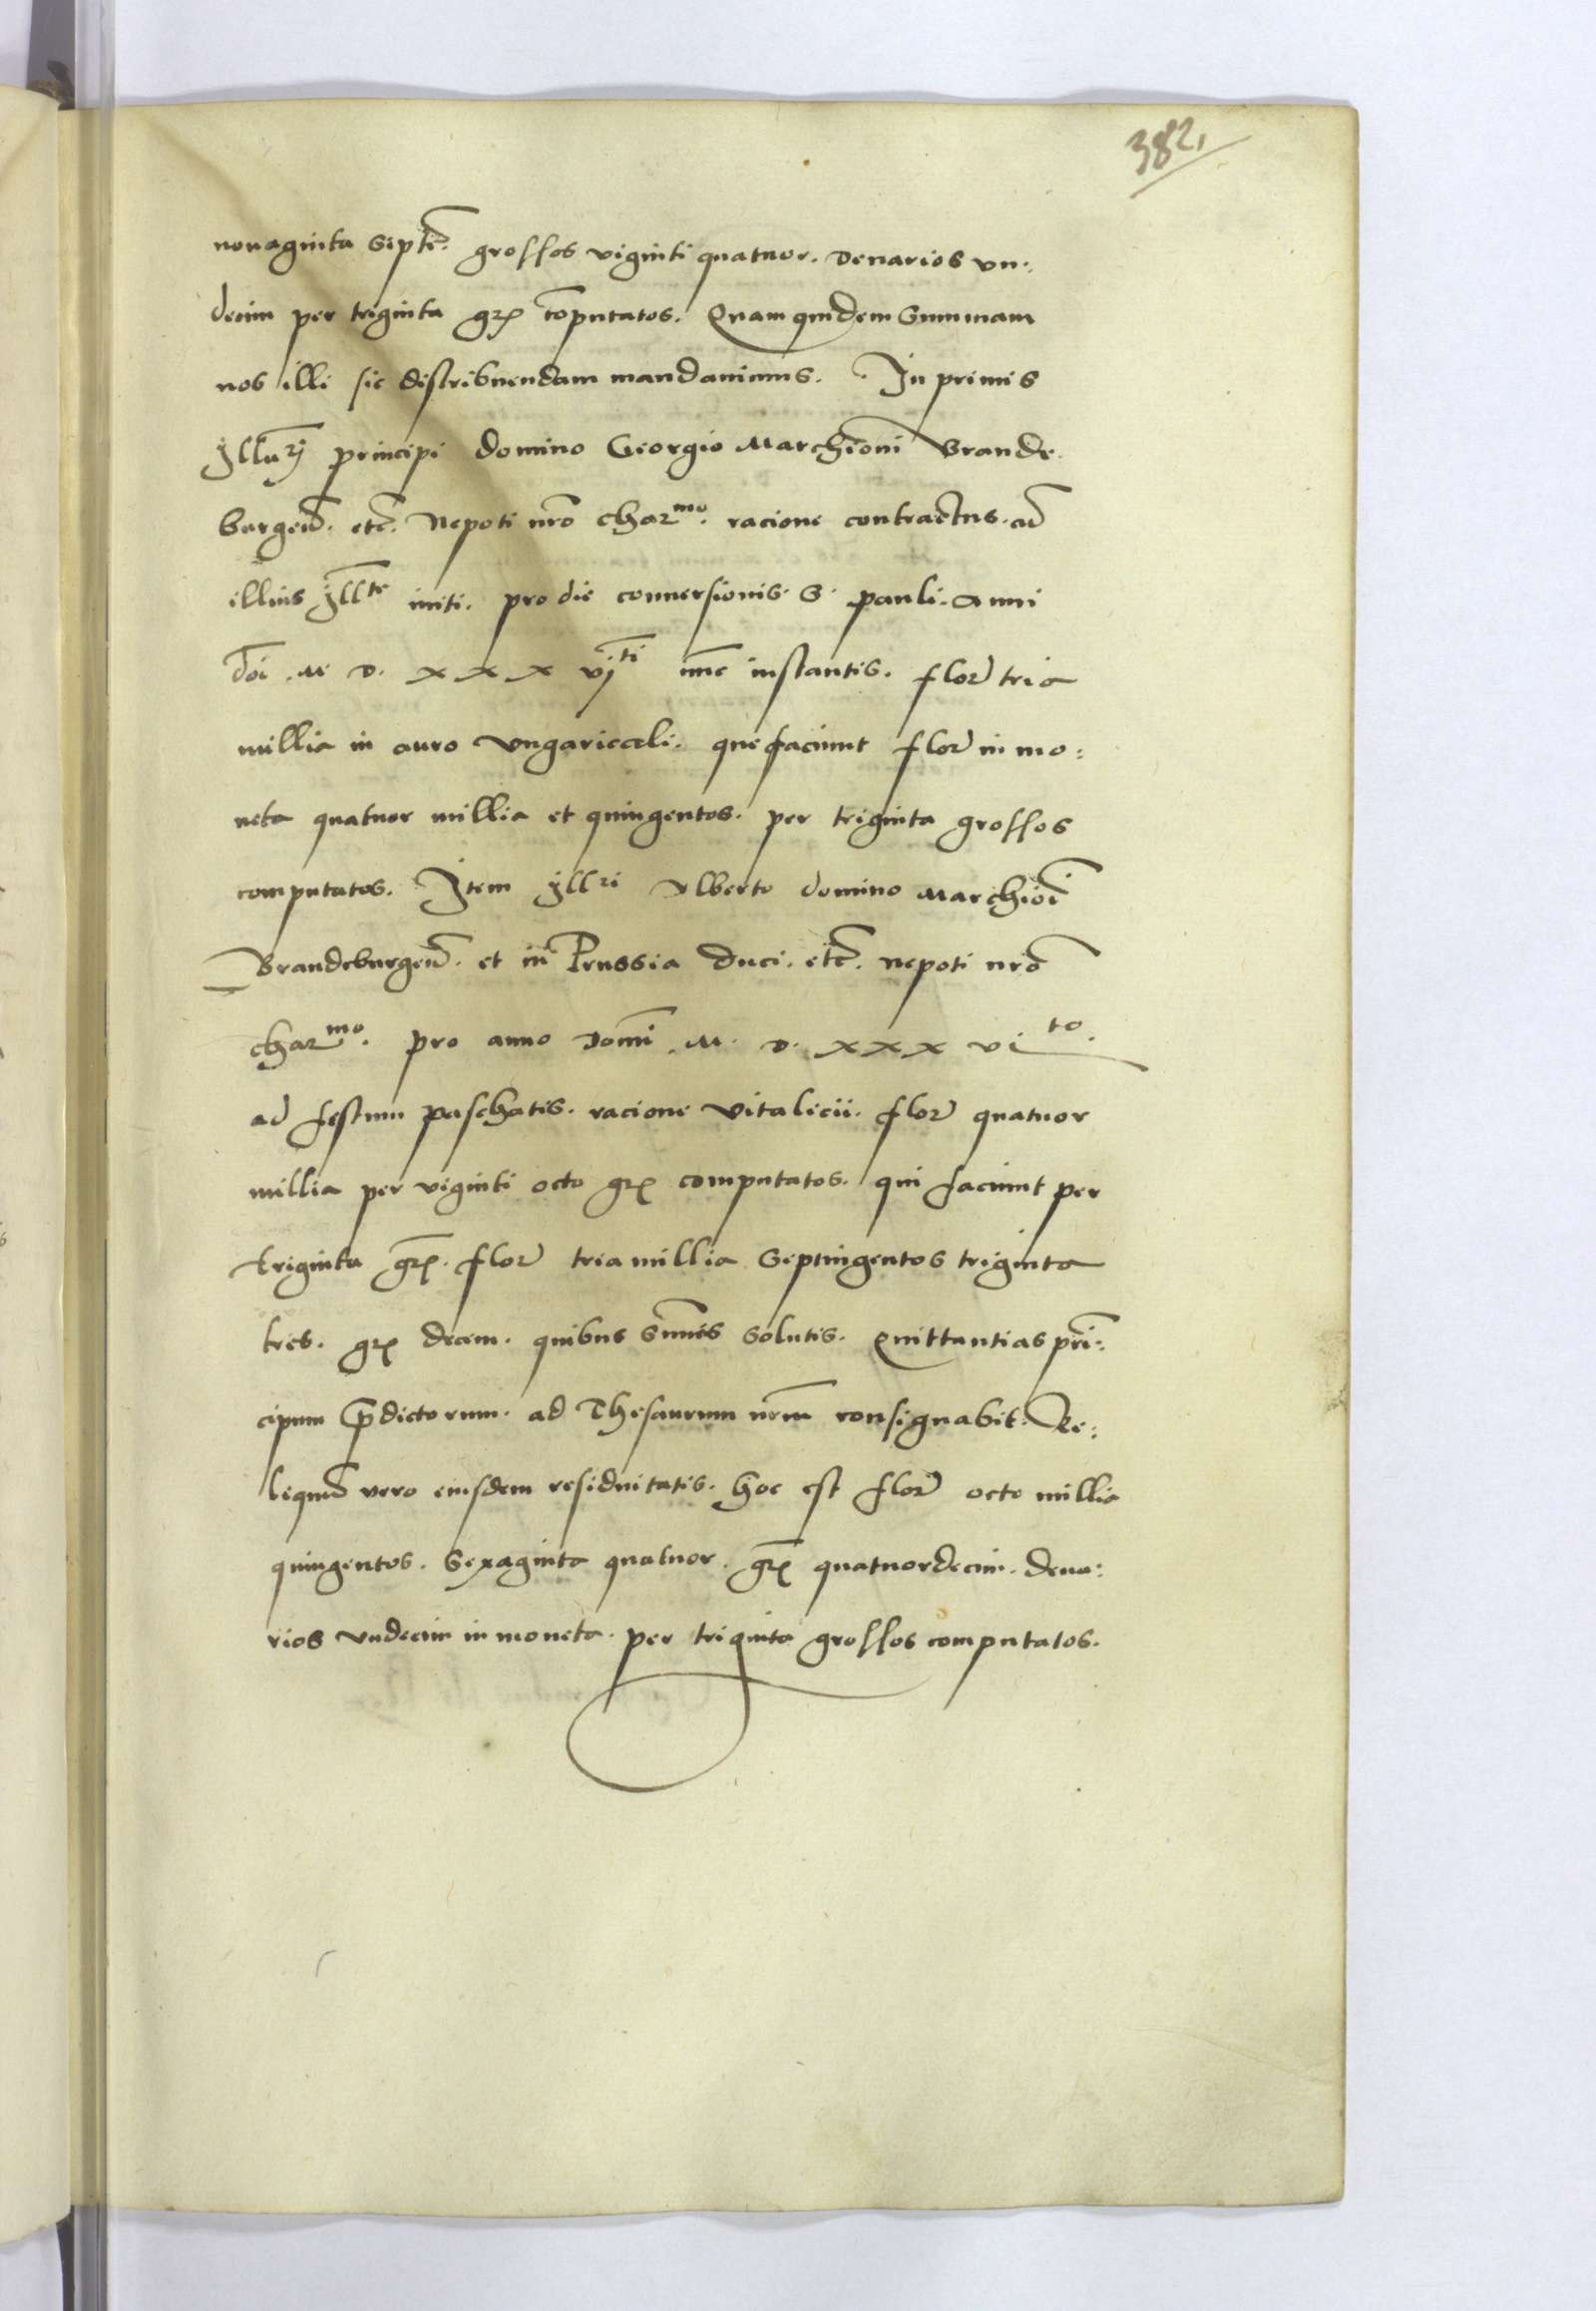 382,
nonaginta Septē. grossos viginti quatuor. Denarios vn:
decim per triginta gr̄ cōputatos. Quam quidem Summam
nos illi sic distribuendam mandauimus. In primis
Principi domino Georgio Marchioni Brande
burgeñ. etc̄. Nepoti nr̄o char^mo. racione contractus. ad
illius Jll^te initi. pro die conuersionis. S. pauli. Anni
dn̄i .M. D. XXX vj^ti nūc instantis. flor̄ tria
millia in auro vngaricali. que faciunt flor̄ in mo:
neta quatuor millia et quingentos. per triginta grossos
computatos. Item Jll^ri Alberto domino Marchioī
Brandeburgeñ. et in Prussia Duci. etc̄. nepoti nr̄o
char^mo. pro anno Domī .M. D. XXX vi^to.
ad festum paschatis. racione vitalicii. flor̄ quatuor
millia per viginti octo gr̄ computatos. qui faciunt per
triginta gr̄. flor̄ tria millia Septingentos triginta
tres. gr̄ decem. quibus sum̄is solutis. Quittantias prī:
cipum p̄dictorum. ad Thesaurum nr̄m consignabit. Re:
liquū vero eiusdem residuitatis. hoc est flor̄ octo millia
quingentos. Sexaginta quatuor. gr̄ quatuordecim. dena:
rios vndecim in moneta. per triginta grossos computatos.